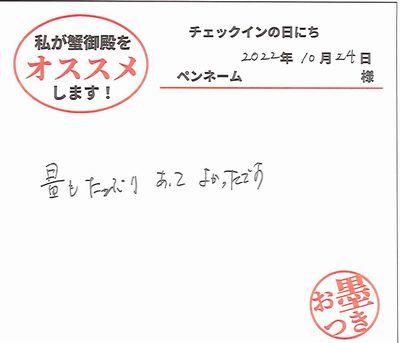 私が蟹御殿を
オススメ
します！
チェックインの日にち
2022年 10月24日
ペンネーム 様
量もたっぷり あって よかったです
お墨
つき